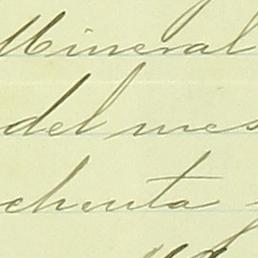 Mineral
del mes
chenta